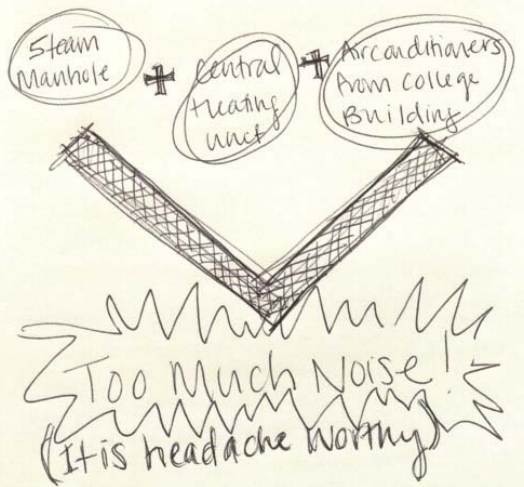 Steam
Manhole
+
Central
Heating
Unit
+
Airconditioners
from college
Building
Too Much Noise!
(It is headache worthy)